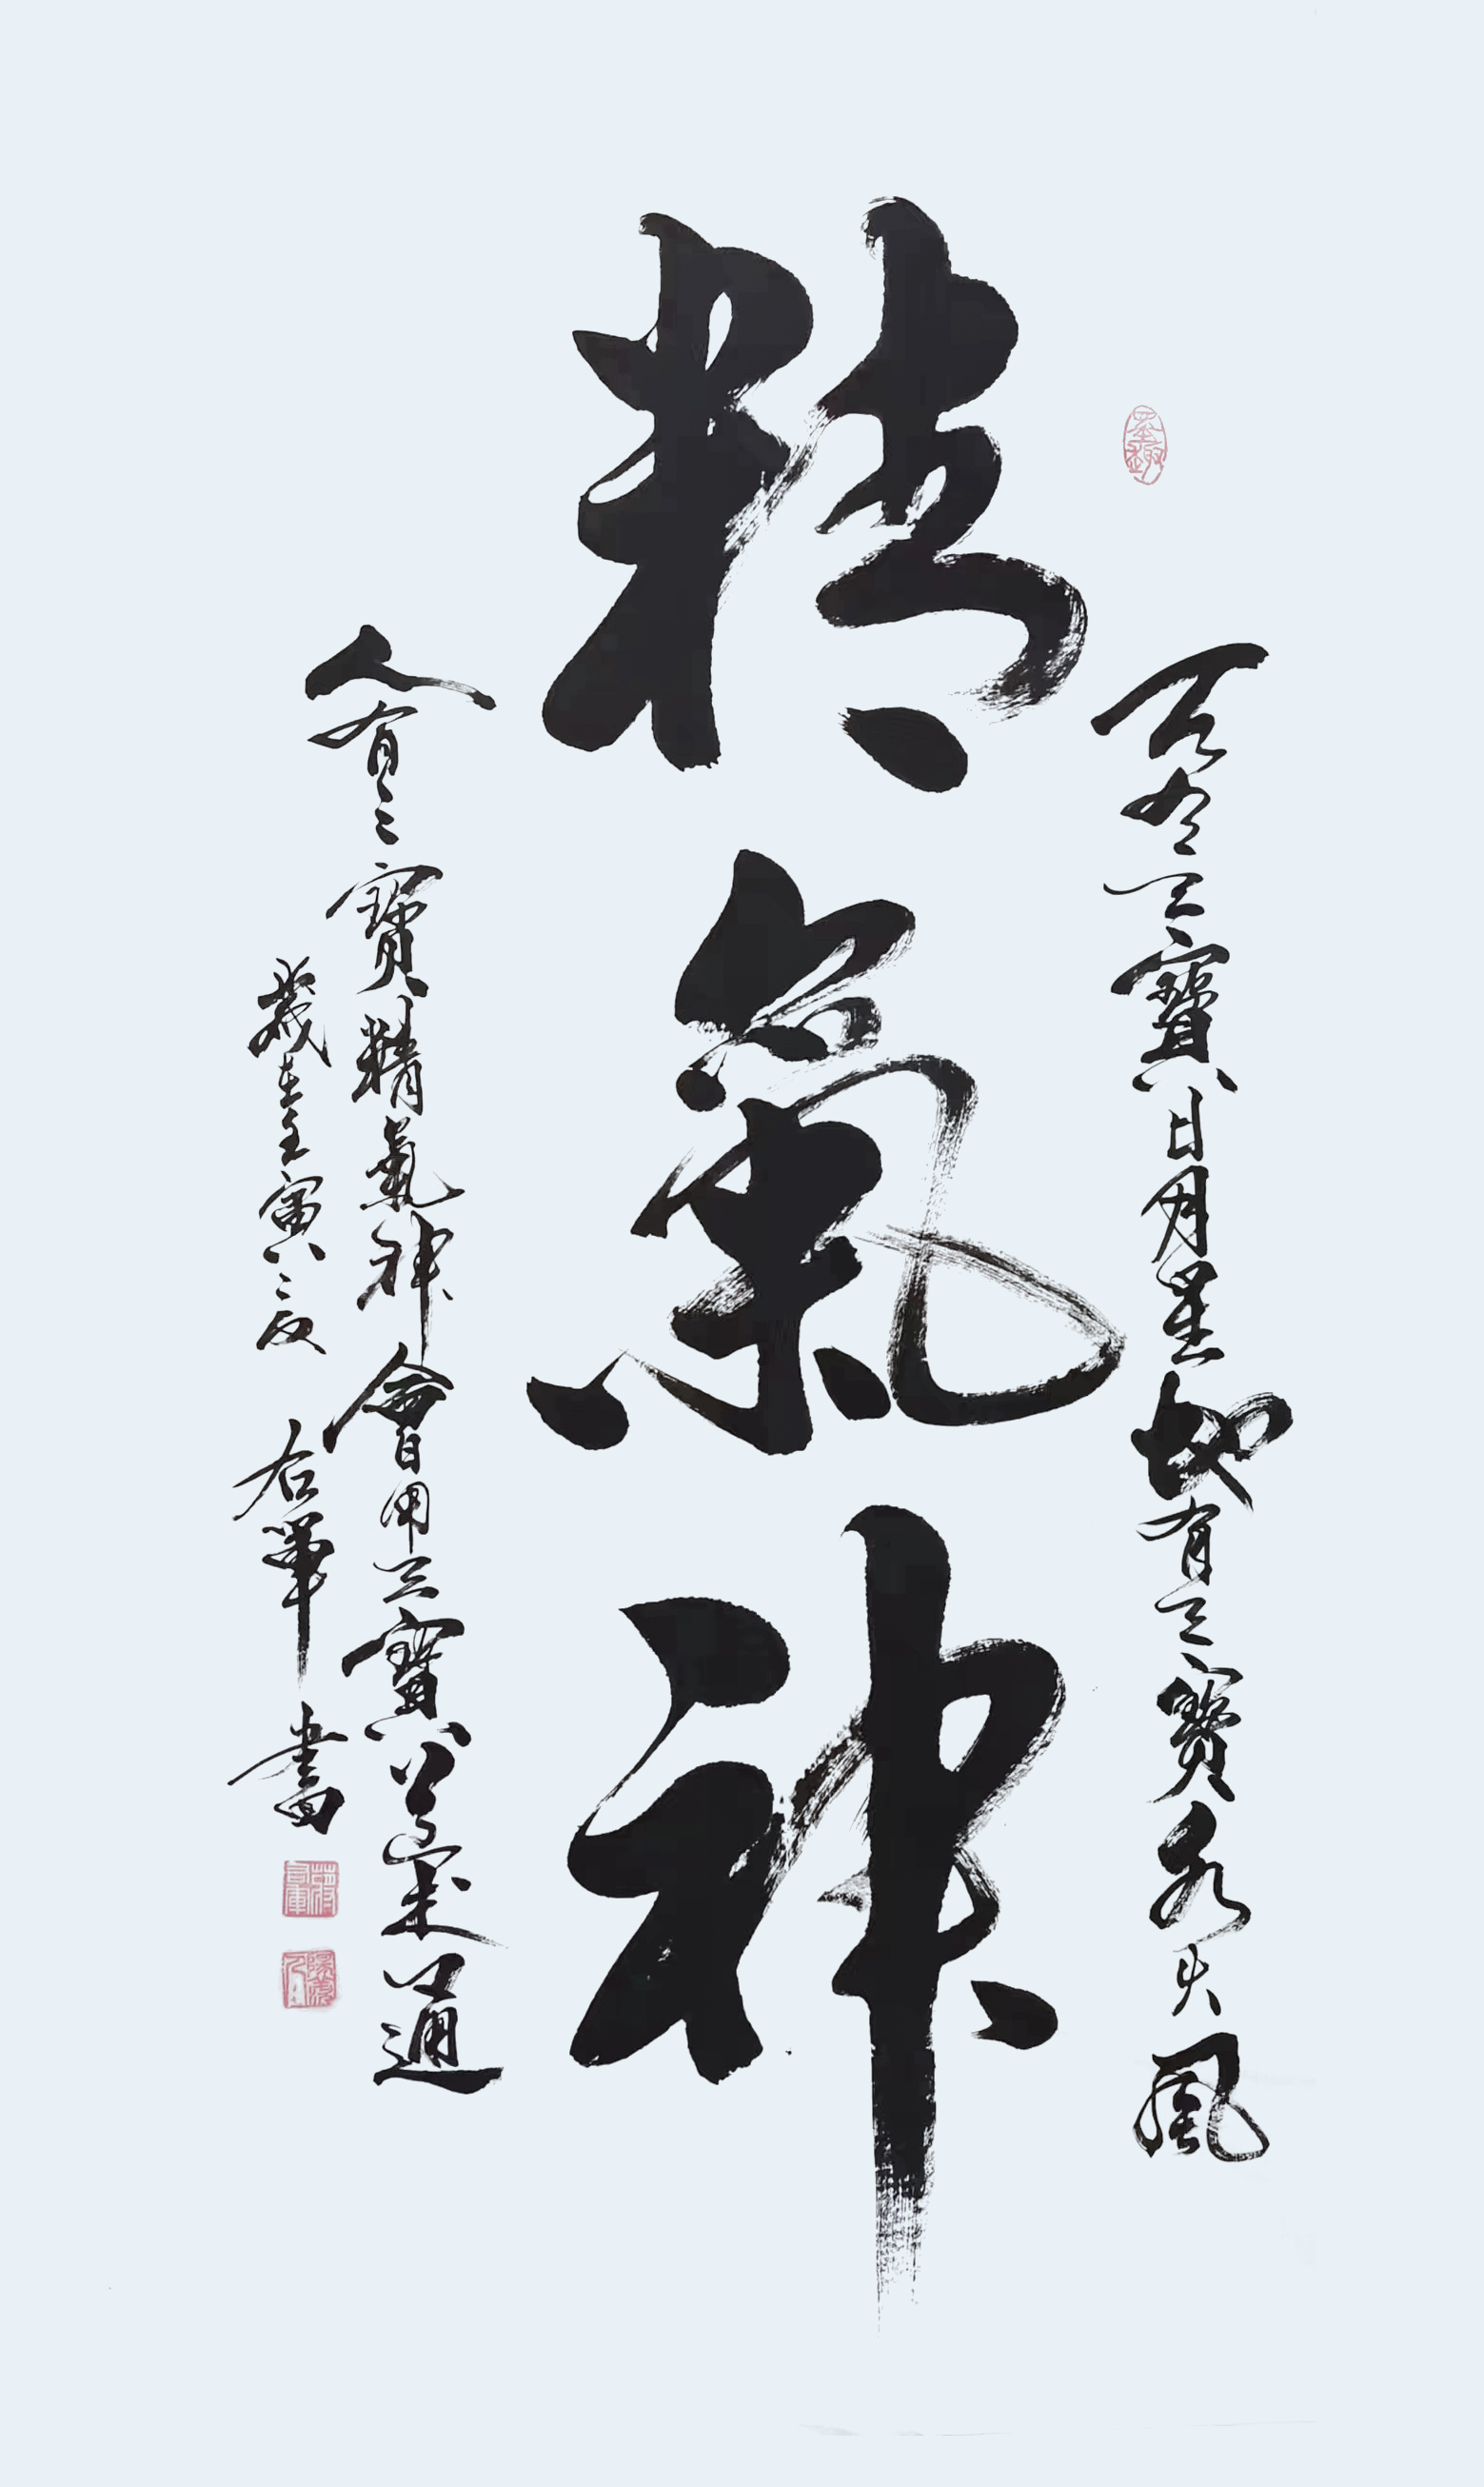 墨趣
天有三寶日月星地有三寶水火風
精氣神
人有三寶精氣神會用三寶通
歲在壬寅之夏 右軍書